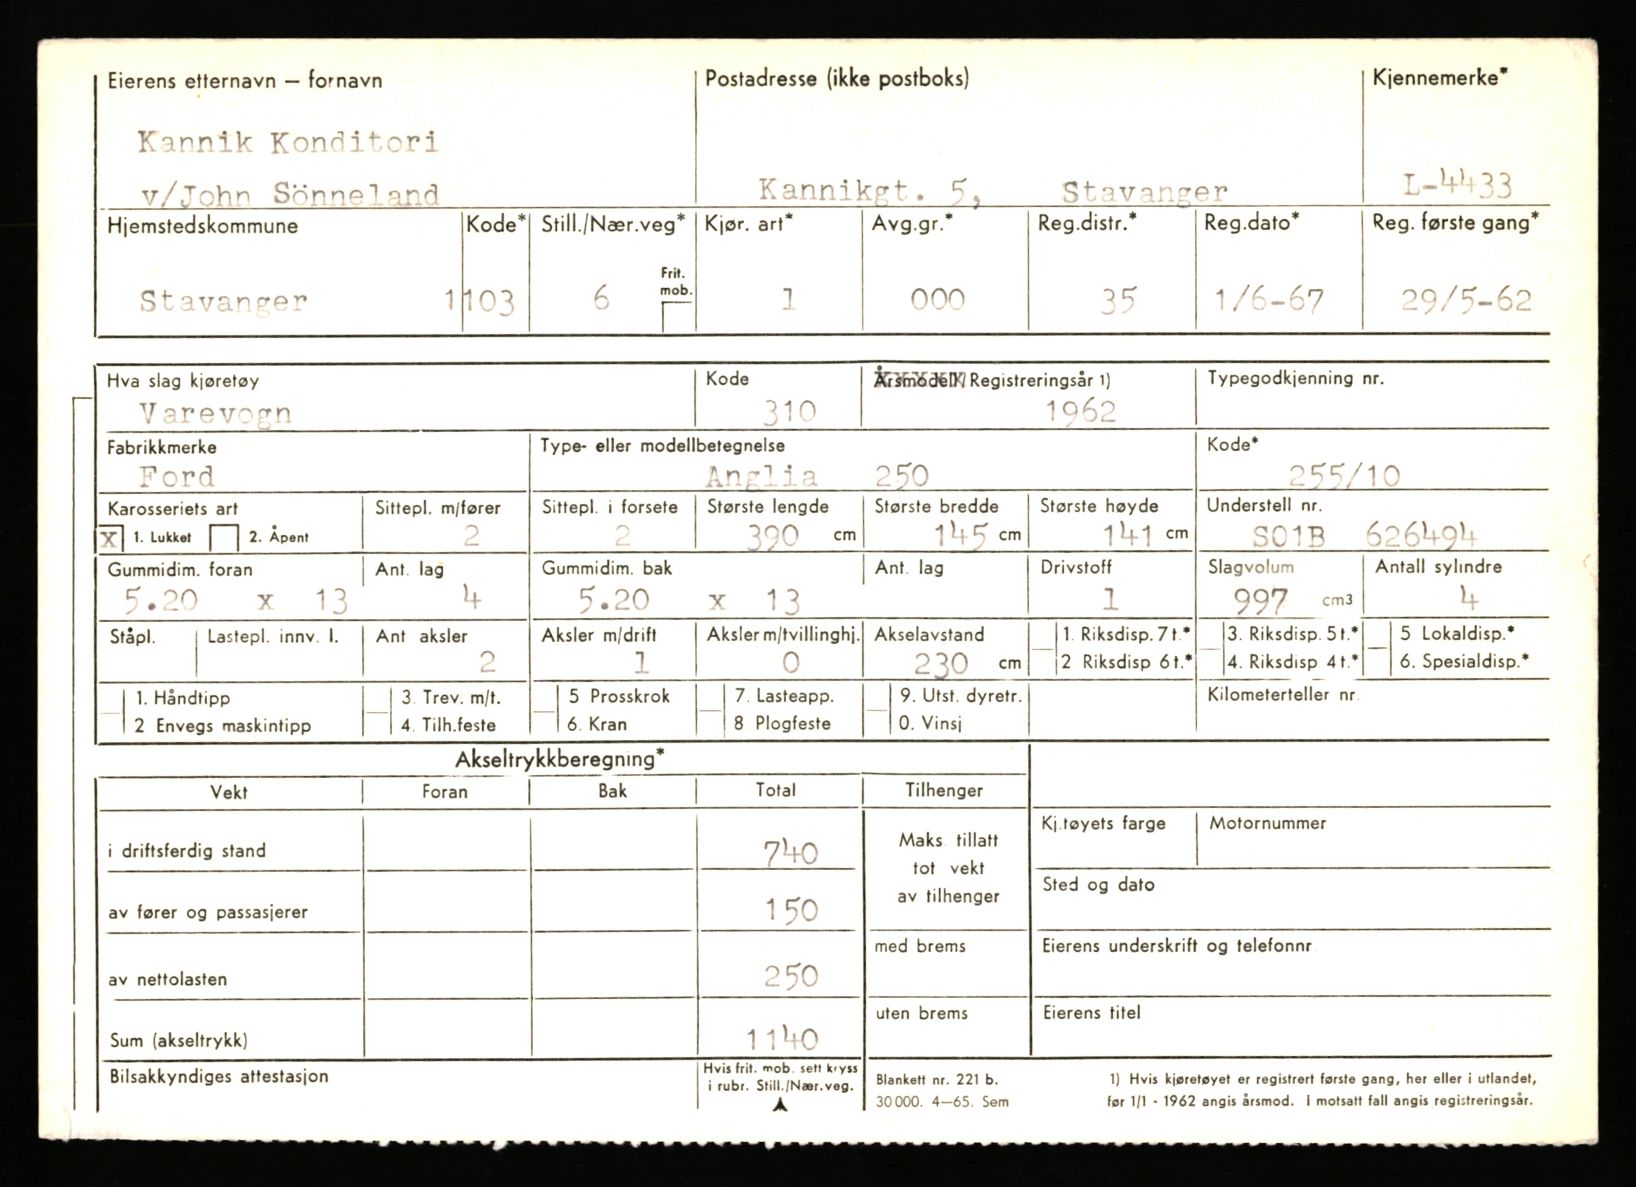 Eierens etternavn — fornavn Postadresse (ikke postboks) Kjennemerke*
Kannik Konditori
v/John Sönneland Kannikgt. 5, Stavanger L-4433
Hjemstedskommune Kode* Still./Nær.veg* Kjør. art* Avg.gr.* Reg.distr.* Reg.dato* Reg. første gang*
Frit.
mob.
Stavanger 1103 6 1 000 35 1/6-67 29/5-62
Hva slag kjøretøy Kode Årsmodell/Registreringsår 1) Typegodkjenning nr.
Varevogn 310 1962
Fabrikkmerke Type- eller modellbetegnelse Kode*
Ford Anglia 250 255/10
Karosseriets art Sittepl. m/fører Sittepl. i forsete Største lengde Største bredde Største høyde Understell nr.
X 1. Lukket 2. Åpent 2 2 390 cm 145 cm 141 cm S01B 626494
Gummidim. foran Ant. lag Gummidim. bak Ant. lag Drivstoff Slagvolum Antall sylindre
5.20 x 13 4 5.20 x 13 1 997 cm3 4
Ståpl. Lastepl. innv. l. Ant aksler Aksler m/drift Aksler m/tvillinghj. Akselavstand 1. Riksdisp. 7 t.* 3. Riksdisp. 5 t.* 5 Lokaldisp.*
2 1 0 230 cm 2 Riksdisp 6 t.* 4. Riksdisp 4 t.* 6. Spesialdisp.*
1. Håndtipp 3. Trev. m/t. 5 Prosskrok 7. Lasteapp. 9. Utst. dyretr. Kilometerteller nr
2 Envegs maskintipp 4. Tilh.feste 6. Kran 8 Plogfeste 0. Vinsj
Akseltrykkberegning*
Vekt Foran Bak Total Tilhenger
Kj.tøyets farge Motornummer
i driftsferdig stand 740 Maks. tillatt
tot vekt
av tilhenger
Sted og dato
av fører og passasjerer 150
med brems Eierens underskrift og telefonnr
av nettolasten 250
uten brems Eierens titel
Sum (akseltrykk) 1140
Bilsakkyndiges attestasjon Hvis frit. mob. sett kryss
i rubr. Still./Nær.veg.
Blankett nr. 221 b. 1) Hvis kjøretøyet er registrert første gang, her eller i utlandet,
30 000. 4—65. Sem før 1/1 - 1962 angis årsmod. I motsatt fall angis registreringsår.